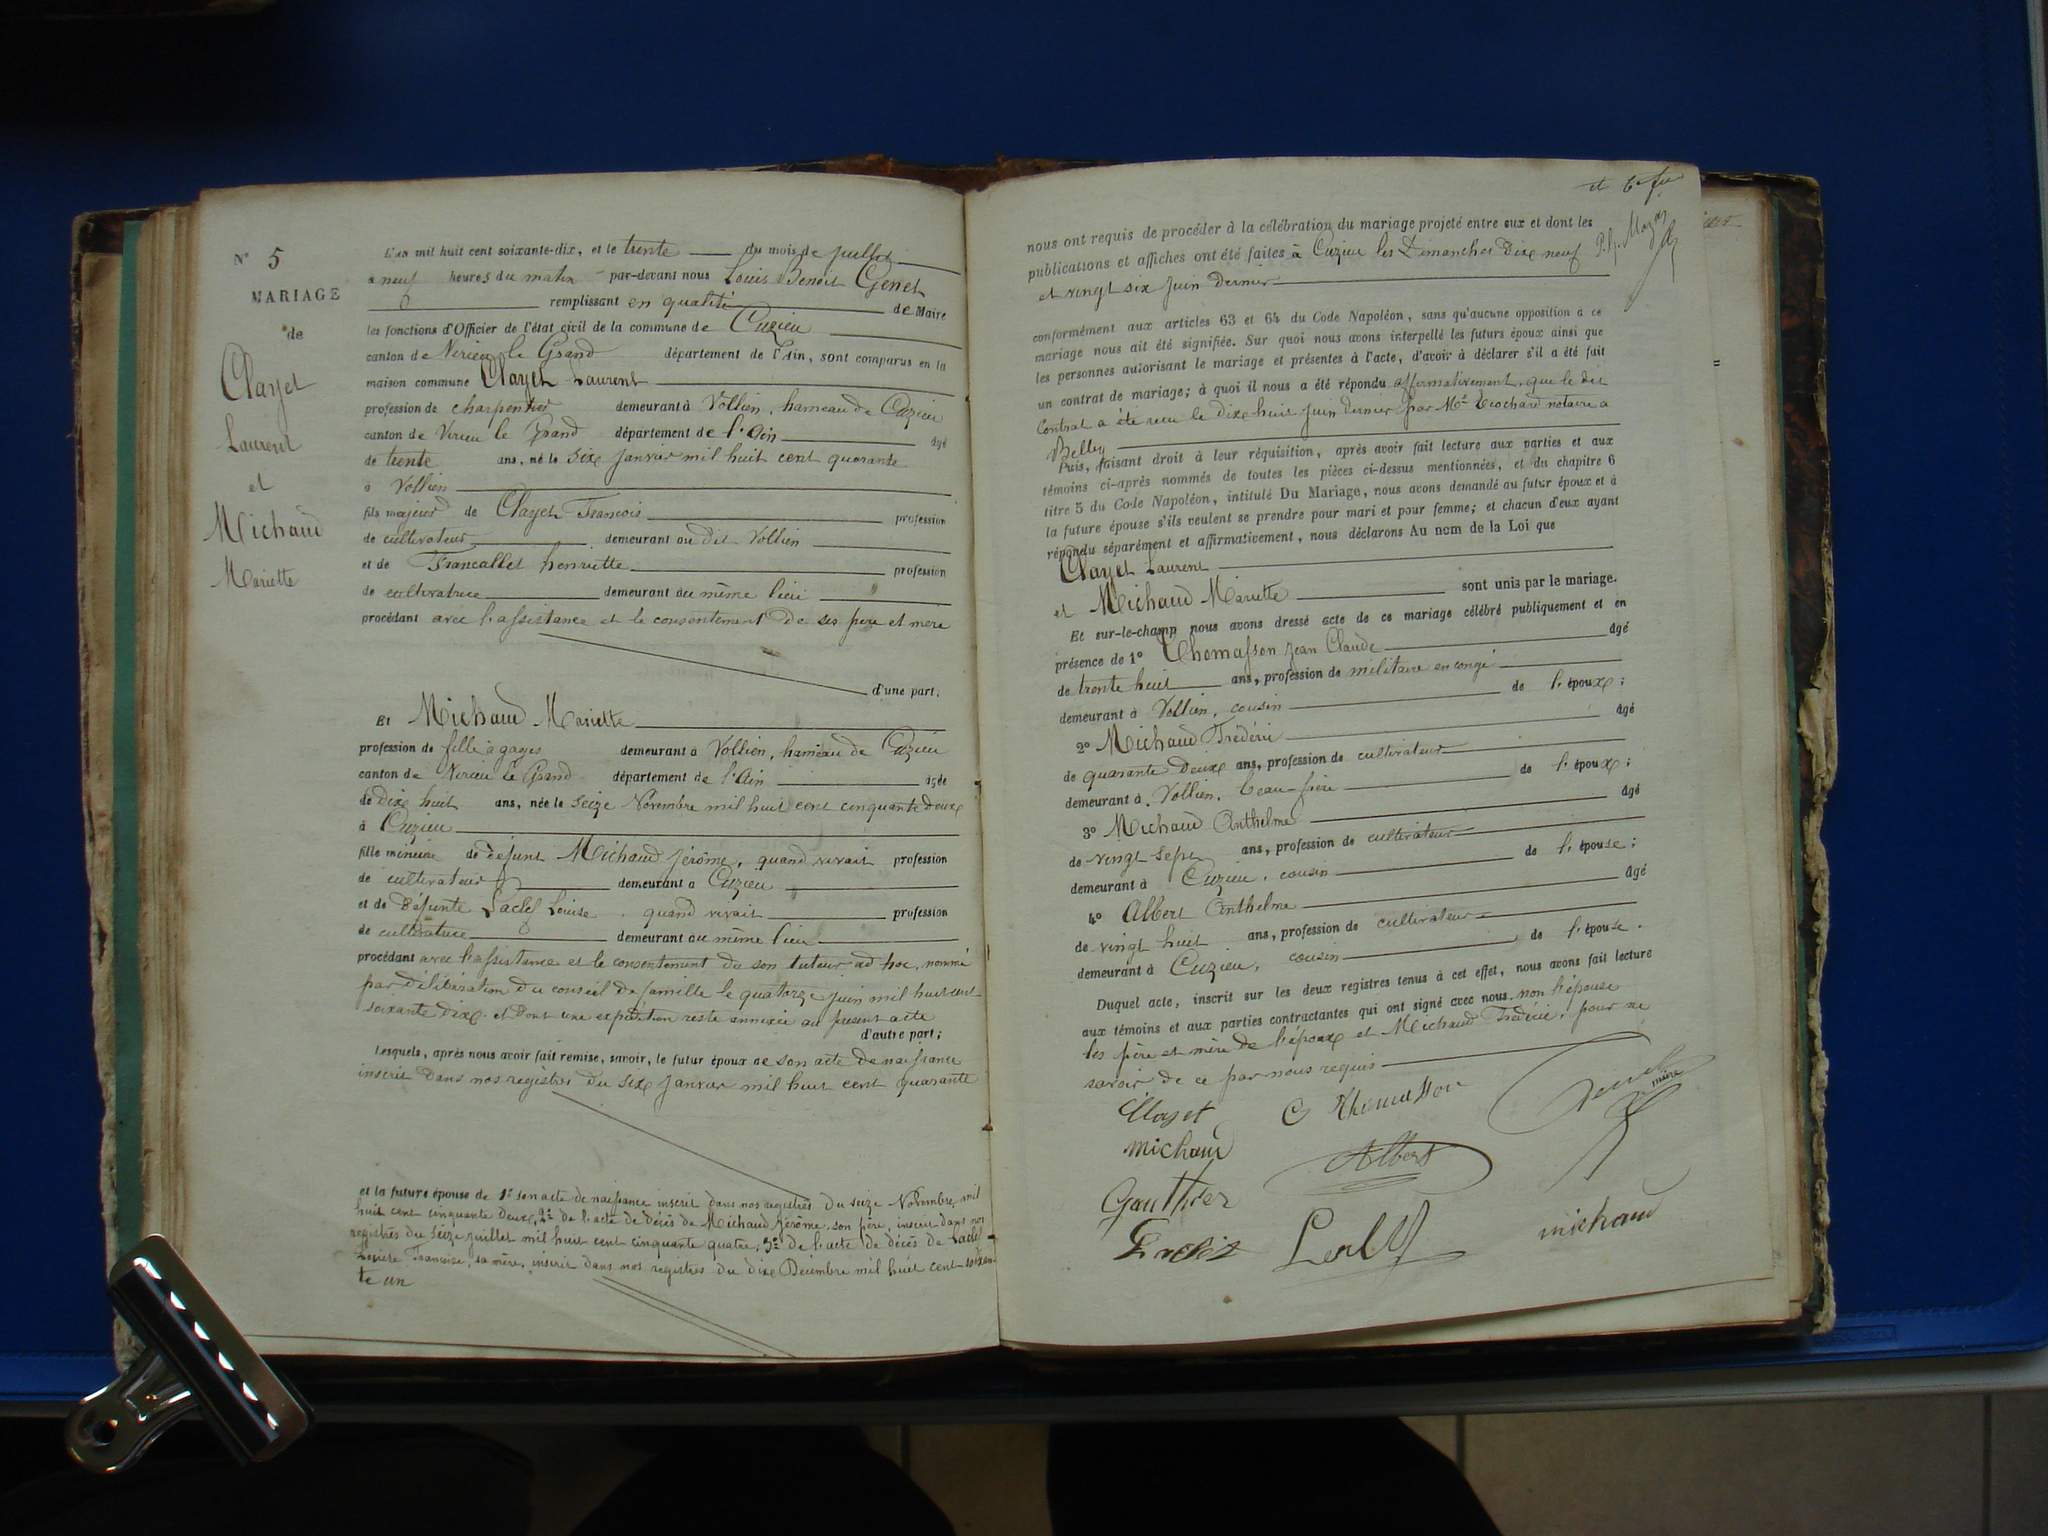 N° 5
MARIAGE
de
Clayet
Laurent
et
Michaud
Mariette
L'an mil huit cent soixante-dix, et le trente du mois de juillet
à neuf heures du matin par-devant nous Louis Benoit Genet
remplissant en qualité de Maire
les fonctions d'Officier de l'état civil de la commune de Cuzieu
canton de Virieu le Grand département de l'Ain, sont comparus en la
maison commune Clayet Laurent
profession de charpentier demeurant à Vollien, hameau de Cuzieu
canton de Virieu le Grand département de l'Ain âgé
de trente ans, né le six Janvier mil huit cent quarante
à Vollien
fils majeur de Clayet Francois profession
de cultivateur demeurant au dit Vollien
et de Francallet henriette profession
de cultivatrice demeurant au même lieu
procédant avec l'assistance et le consentement de ses père et mère
d'une part;
Et Michaud Mariette
profession de fille à gages demeurant à Vollien, hameau de Cuzieu
canton de Virieu le Grand département de l'Ain âgée
de dix huit ans, née le seize Novembre mil huit cent cinquante deux
à Cuzieu
fille mineure de défunt Michaud Jérôme, quand vivait profession
de cultivateur demeurant à Cuzieu
et de défunte Laclef Louise, quand vivait profession
de cultivatrice demeurant au même lieu
procédant avec l'assistance et le consentement du son tuteur ad hoc, nommé
par délibération du conseil de famille le quatorze juin mil huit cent
soixante dix et dont une expédition reste annexée au présent acte
d'autre part;
Lesquels, après nous avoir fait remise, savoir, le futur époux de son acte de naissance
inscrit dans nos registres du six Janvier mil huit cent quarante
et la future épouse de 1° son acte de naissance inscrit dans nos registres du seize Novembre mil
huit cent cinquante deux, 2° de l'acte de décès de Michaud Jérôme, son père, inscrit dans nos
registres du seize juillet mil huit cent cinquante quatre, 3° de l'acte de décès de Laclef
Louise Francoise, sa mère, inscrit dans nos registres du dix Décembre mil huit cent soixan
te un
nous ont requis de procéder à la célébration du mariage projeté entre eux et dont les
publications et affiches ont été faites à Cuzieu les Dimanches Dix neuf
et vingt six Juin dernier
conformément aux articles 63 et 64 du Code Napoléon, sans qu'aucune opposition à ce
mariage nous ait été signifiée. Sur quoi nous avons interpellé les futurs époux ainsi que
les personnes autorisant le mariage et présentes à l'acte, d'avoir à déclarer s'il a été fait
un contrat de mariage; à quoi il nous a été répondu affirmativement, que le dit
Contrat a été reçu le dix huit Juin dernier par Me Trochard notaire à
Belley
Puis, faisant droit à leur réquisition, après avoir fait lecture aux parties et aux
témoins ci-après nommés de toutes les pièces ci-dessus mentionnées, et du chapitre 6
titre 5 du Code Napoléon, intitulé Du Mariage, nous avons demandé au futur époux et à
la future épouse s'ils veulent se prendre pour mari et pour femme; et chacun d'eux ayant
répondu séparément et affirmativement, nous déclarons Au nom de la Loi que
Clayet Laurent
et Michaud Mariette sont unis par le mariage.
Et sur-le-champ nous avons dressé acte de ce mariage célébré publiquement et en
présence de 1° Thomasson Jean Claude âgé
de trente huit ans, profession de militaire en congé
demeurant à Vollien, cousin de l'époux;
2° Michaud Frédéric âgé
de quarante deux ans, profession de cultivateur
demeurant à Vollien, beau-frère de l'époux;
3° Michaud Anthelme âgé
de vingt sept ans, profession de cultivateur
demeurant à Cuzieu, cousin de l'épouse;
4° Albert Anthelme âgé
de vingt huit ans, profession de cultivateur
demeurant à Cuzieu, cousin de l'épouse.
Duquel acte, inscrit sur les deux registres tenus à cet effet, nous avons fait lecture
aux témoins et aux parties contractantes qui ont signé avec nous non l'épouse
les père et mère de l'époux et Michaud Frédéric, pour ne
savoir de ce par nous requis
Clayet
C Thomasson
Genet
maire
michaud
Albert
Gauthier
michaud